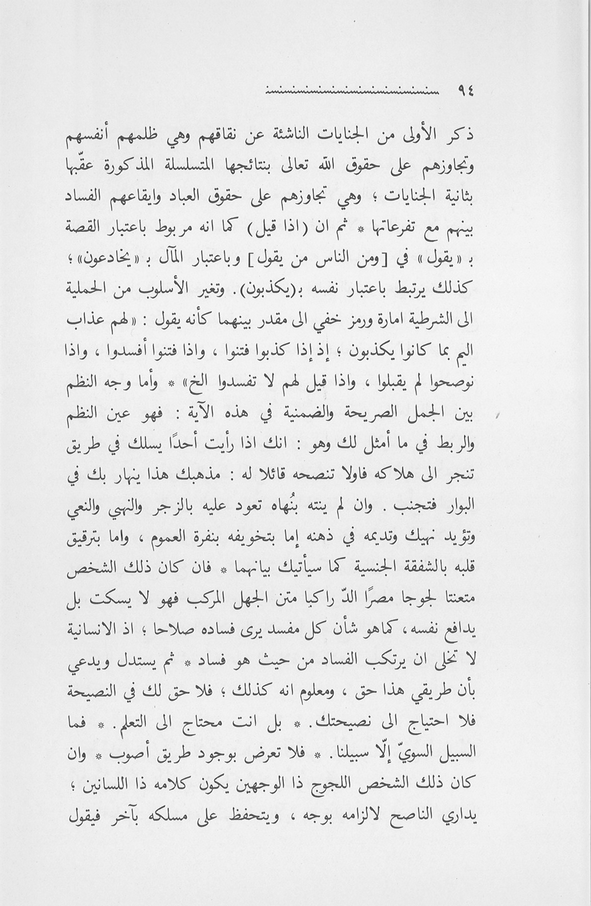 ٩٤
ذكر الأولى من الجنايات الناشئة عن نفاقهم وهي ظلمهم أنفسهم
وتجاوزهم على حقوق الله تعالى بنتائجها المتسلسلة المذكورة عقّبها
بثانية الجنايات ؛ وهي تجاوزهم على حقوق العباد وايقاعهم الفساد
بينهم مع تفرعاتها * ثم ان (اذا قيل) كما انه مربوط باعتبار القصة
بـ «يقول» في [ومن الناس من يقول] وباعتبار المآل بـ «يخادعون»؛
كذلك يرتبط باعتبار نفسه بـ(يكذبون). وتغير الأسلوب من الحملية
الى الشرطية امارة ورمز خفي الى مقدر بينهما كأنه يقول : «لهم عذاب
اليم بما كانوا يكذبون ؛ إذ إذا كذبوا فتنوا ، واذا فتنوا أفسدوا ، واذا
نوصحوا لم يقبلوا ، واذا قيل لهم لا تفسدوا الخ» * وأما وجه النظم
بين الجمل الصريحة والضمنية في هذه الآية : فهو عين النظم
والربط في ما أمثل لك وهو : انك اذا رأيت أحدًا يسلك في طريق
تنجر الى هلاكه فاولا تنصحه قائلا له : مذهبك هذا ينهار بك في
البوار فتجنب . وان لم ينته بنُهاه تعود عليه بالزجر والنهي والنعي
وتؤيد نهيك وتديمه في ذهنه إما بتخويفه بنفرة العموم ، واما بترقيق
قلبه بالشفقة الجنسية كما سيأتيك بيانهما * فان كان ذلك الشخص
متعنتا لجوجا مصرًا الدّ راكبا متن الجهل المركب فهو لا يسكت بل
يدافع نفسه، كماهو شأن كل مفسد يرى فساده صلاحا ؛ اذ الانسانية
لا تخلى ان يرتكب الفساد من حيث هو فساد * ثم يستدل ويدعي
بأن طريقي هذا حق ، ومعلوم انه كذلك ؛ فلا حق لك في النصيحة
فلا احتياج الى نصيحتك. * بل انت محتاج الى التعلم. * فما
السبيل السويّ إلّا سبيلنا. * فلا تعرض بوجود طريق أصوب * وان
كان ذلك الشخص اللجوج ذا الوجهين يكون كلامه ذا اللسانين ؛
يداري الناصح لالزامه بوجه ، ويتحفظ على مسلكه بآخر فيقول